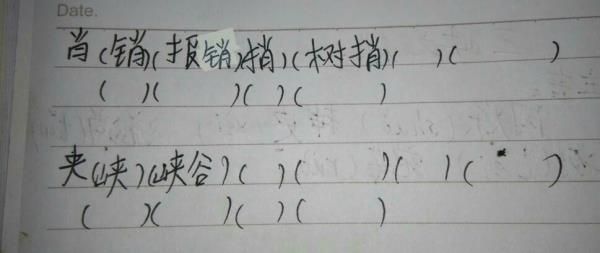 Date.
肖(销)(报销)(捎)(树捎)( )( )
( )( )( )( )
夹(峡)(峡谷)( )( )( )( )
( )( )( )( )